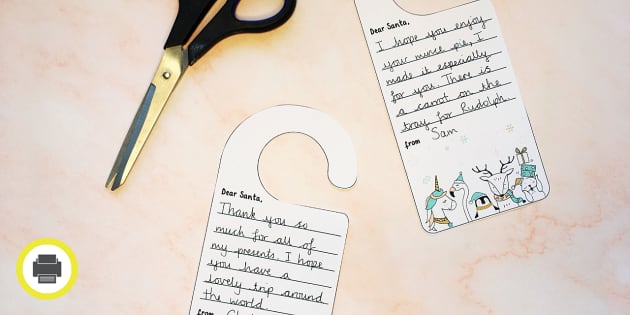 Dear Santa,
I hope you enjoy
your mince pie, I
made it especially
for you. There is
a carrot on the
tray for Rudolph.
from Sam
Dear Santa,
Thank you so
much for all of
my presents. I hope
you have a
lovely trip around
the world
from